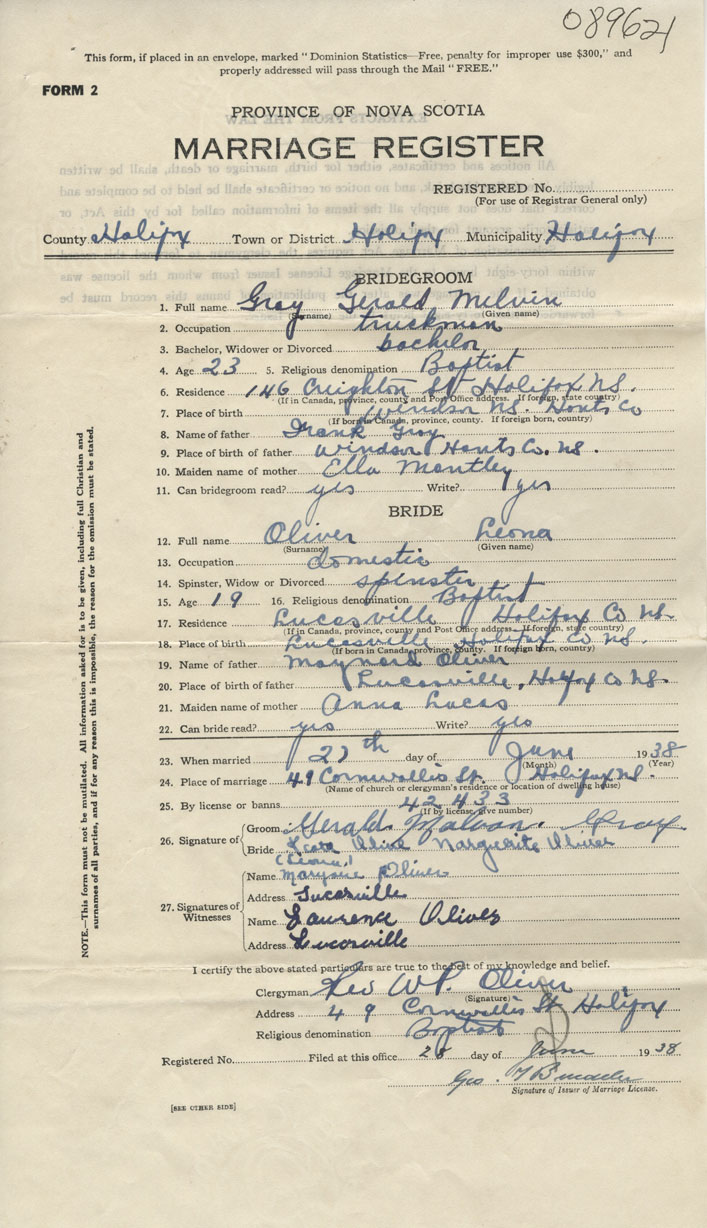 08962
This form, if placed in an envelope, marked "Dominion Statistics—Free, penalty for improper use $300," and
properly addressed will pass through the Mail "FREE."
FORM 2
PROVINCE OF NOVA SCOTIA
MARRIAGE REGISTER
REGISTERED No.
(For use of Registrar General only)
County Halifax Town or District Halifax Municipality Halifax
BRIDEGROOM
1. Full name Gray Gerald Melvin
(Surname) (Given name)
2. Occupation truckman
3. Bachelor, Widower or Divorced bachelor
4. Age 23 5. Religious denomination Baptist
6. Residence 146 Creighton St Halifax N.S.
(If in Canada, province, county and Post Office address. If foreign, state country)
7. Place of birth Windsor N.S. Hants Co
(If born in Canada, province, county. If foreign born, country)
8. Name of father Frank Gray
9. Place of birth of father Windsor Hants Co. N.S.
10. Maiden name of mother Ella Mantley
11. Can bridegroom read? yes Write? yes
BRIDE
12. Full name Oliver Leona
(Surname) (Given name)
13. Occupation domestic
14. Spinster, Widow or Divorced spinster
15. Age 19 16. Religious denomination Baptist
17. Residence Lucasville Halifax Co N.S.
(If in Canada, province, county and Post Office address. If foreign, state country)
18. Place of birth Lucasville Halifax Co N.S.
(If born in Canada, province, county. If foreign born, country)
19. Name of father Maynard Oliver
20. Place of birth of father Lucasville, Halifax Co N.S.
21. Maiden name of mother Anna Lucas
22. Can bride read? yes Write? yes
23. When married 27th day of June 1938
(Month) (Year)
24. Place of marriage 49 Cornwallis St. Halifax N.S.
(Name of church or clergyman's residence or location of dwelling house)
25. By license or banns 42433
(If by license, give number)
26. Signature of Groom Gerald Gray
Bride Marguerite Oliver
(Leona)
27. Signatures of Witnesses
Name Oliver
Address Lucasville
Name Laurence Oliver
Address Lucasville
I certify the above stated particulars are true to the best of my knowledge and belief.
Clergyman Rev W.P. Oliver
(Signature)
Address 49 Cornwallis St Halifax
Religious denomination Baptist
Registered No. Filed at this office 28 day of June 1938
Geo.
Signature of Issuer of Marriage License.
[SEE OTHER SIDE]
NOTE.—This form must not be mutilated. All information asked for is to be given, including full Christian and
surnames of all parties, and if for any reason this is impossible, the reason for the omission must be stated.